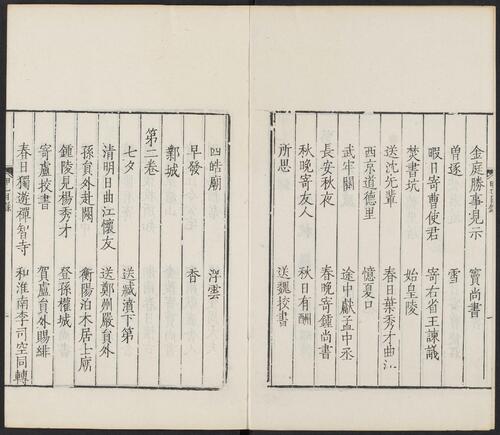 金庭勝事見示　竇尚書
曾逐　雪
暇日寄曹使君　寄右省王諫議
焚書坑　始皇陵
送沈先輩　春日葉秀才曲江
西京道德里　憶夏口
武牢關　途中獻孟中丞
長安秋夜　春晚寄鍾尚書
秋晚寄友人　秋日有酬
所思　送魏挍書
四皓廟　浮雲
早發　香
鄴城
第二卷
七夕　送臧濆下第
清明日曲江懷友　送鄭州嚴貟外
孫貟外赴闕　衡陽泊木居士廟
鍾陵見楊秀才　登孫權城
寄盧挍書　賀盧貟外賜緋
春日獨遊禪智寺　和淮南李司空同轉